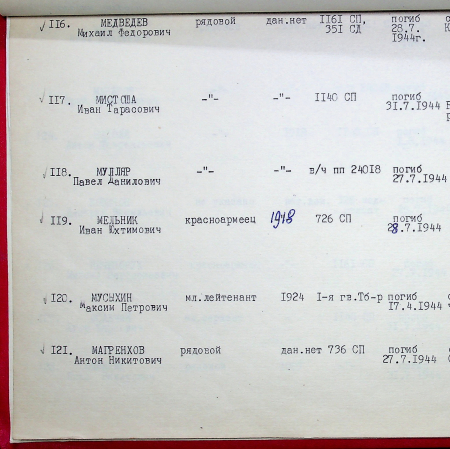 √ 116. МЕДВЕДЕВ рядовой дан.нет 1161 СП, погиб
Михаил Федорович 351 СД 28.7.
1944г.
√ 117. МИСТЮША -"- -"- 1140 СП погиб
Иван Тарасович 31.7.1944
√ 118. МУЛЛЯР -"- -"- в/ч пп 24018 погиб
Павел Данилович 27.7.1944
√ 119. МЕЛЬНИК красноармеец 1918 726 СП погиб
Иван Юхтимович 28.7.1944
√ 120. МУСЫХИН мл.лейтенант 1924 1-я гв.Тб-р погиб
Максим Петрович 17.4.1944
√ 121. МАГРЕНХОВ рядовой дан.нет 736 СП погиб
Антон Никитович 27.7.1944